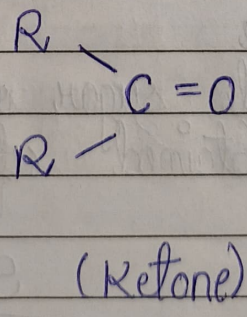 R
C = O
R
(Ketone)